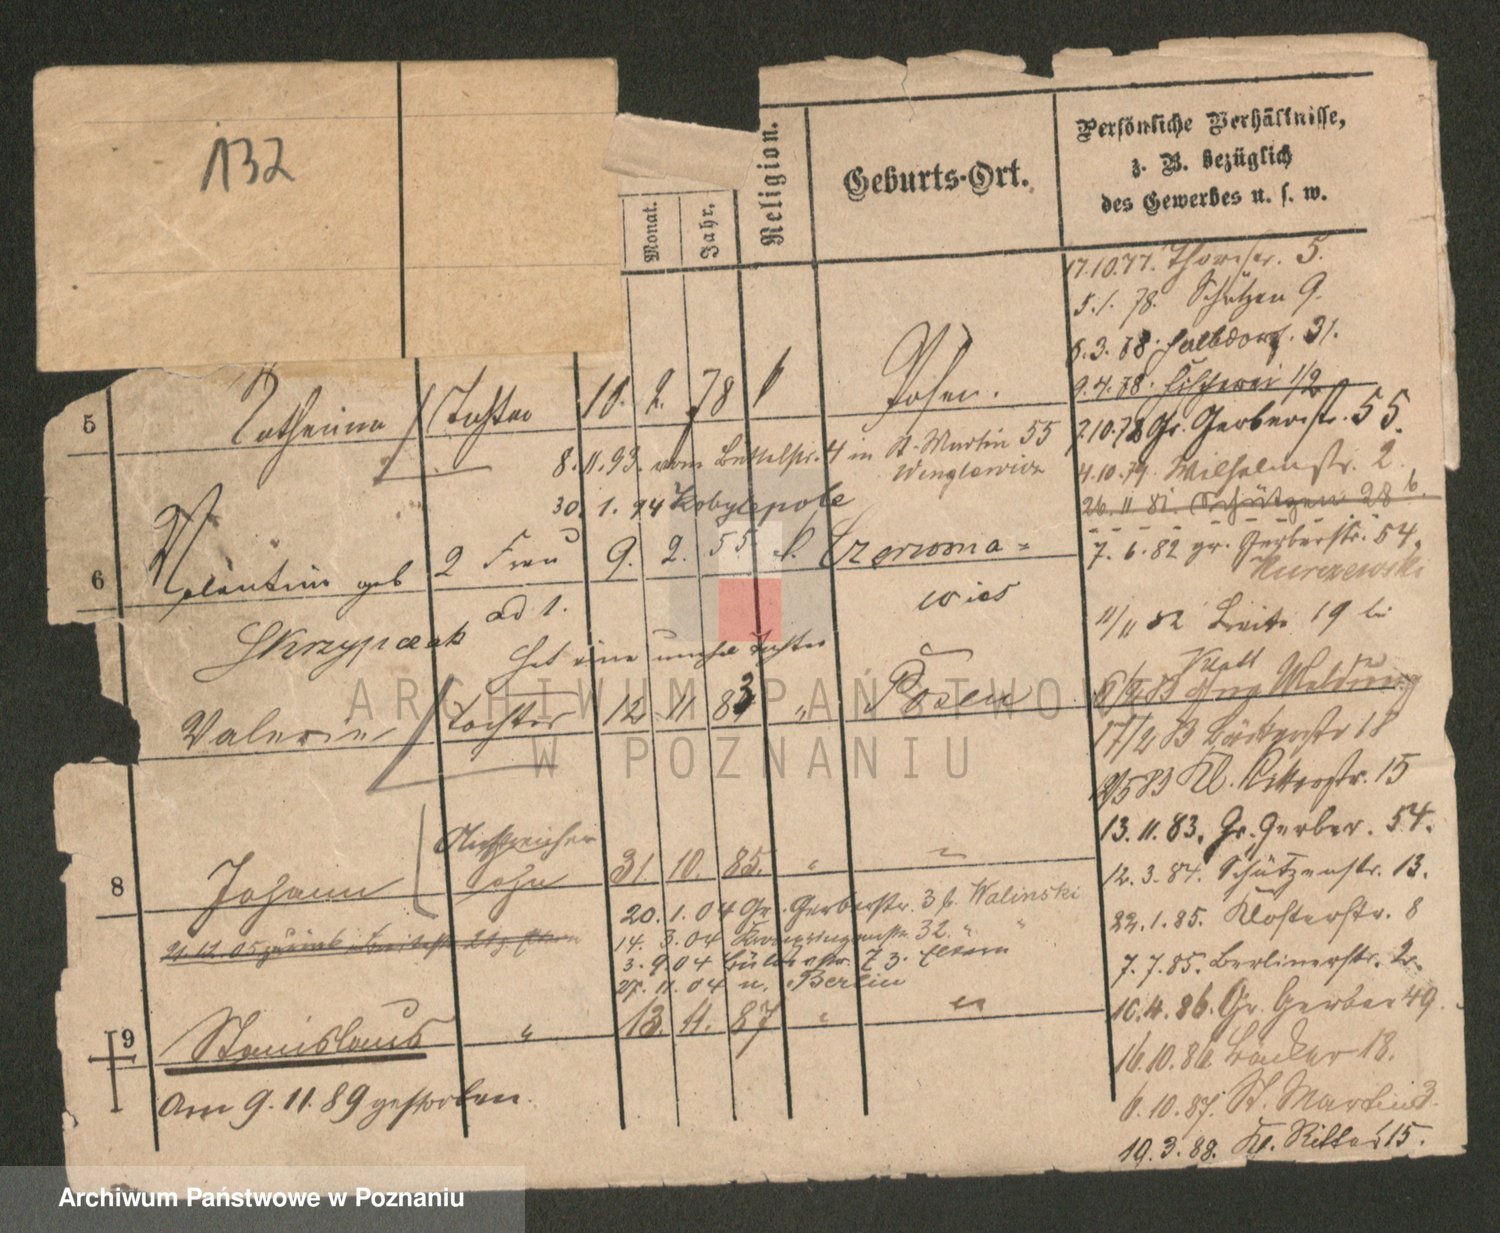 132
Religion.
Geburts-Ort.
Persönliche Verhältnisse,
z. B. bezüglich
des Gewerbes u. s. w.
Monat.
Jahr.
17.10.77. 5.
5.1.78. Schützen 9.
6.3.78. Halbdorf. 31.
9.4.78. Fischerei 1/2
5 Katharina Tochter 10. 2. 78 Posen.
2.10.78 Gr. Gerberstr. 55.
8.11.93. vom Büttelstr. 4 in St. Martin 55
4.10.79. Wilhelmstr. 2.
30. 1. 94 Kobylepole
26.11.81. Schützen 28b.
6 Valentine geb 2 Frau 9. 2. 55 k. Czerwona=
7.6.82 gr. Gerberstr. 54.
Kurczewski
Skrzypczak ad 1. wies
11/11 82 Breite 19 bei
hat eine unehel Tochter
Valerie Tochter 12 11 83 " Posen
ohne Meldung
17/2 83 Bäckerstr 18
5 83 Kl. Ritterstr. 15
13.11.83. Gr. Gerber. 54.
8 Johann Sohn 31. 10. 85. " "
12.3.84. Schützenstr. 13.
20. 1. 04 Gr. Gerberstr. 36. Walinski
22.1.85. Klosterstr. 8
14. 3. 04 32. " "
21.12.05 zurück
3. 9 04 Eltern
7.7.85. Berlinerstr. 2.
27. 11. 04 n. Berlin
10.4.86. Gr. Gerber 49.
9 Stanislaus " 13. 4. 87 " "
16.10.86. Bäcker 18.
Am 9.11.89 gestorben.
6.10.87. St. Martin 3.
10.3.88. Kl. Ritter 15.
ARCHIWUM PAŃSTWOWE
W POZNANIU
Archiwum Państwowe w Poznaniu